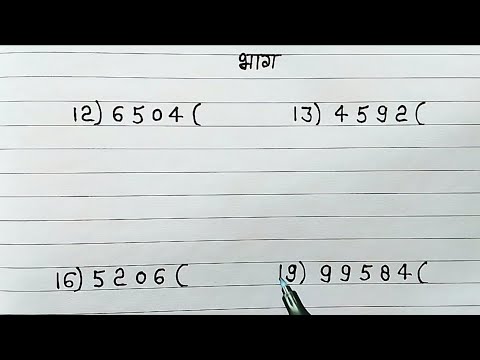 भाग
12) 6504 ( 13) 4592 (
16) 5206 ( 19) 99584 (